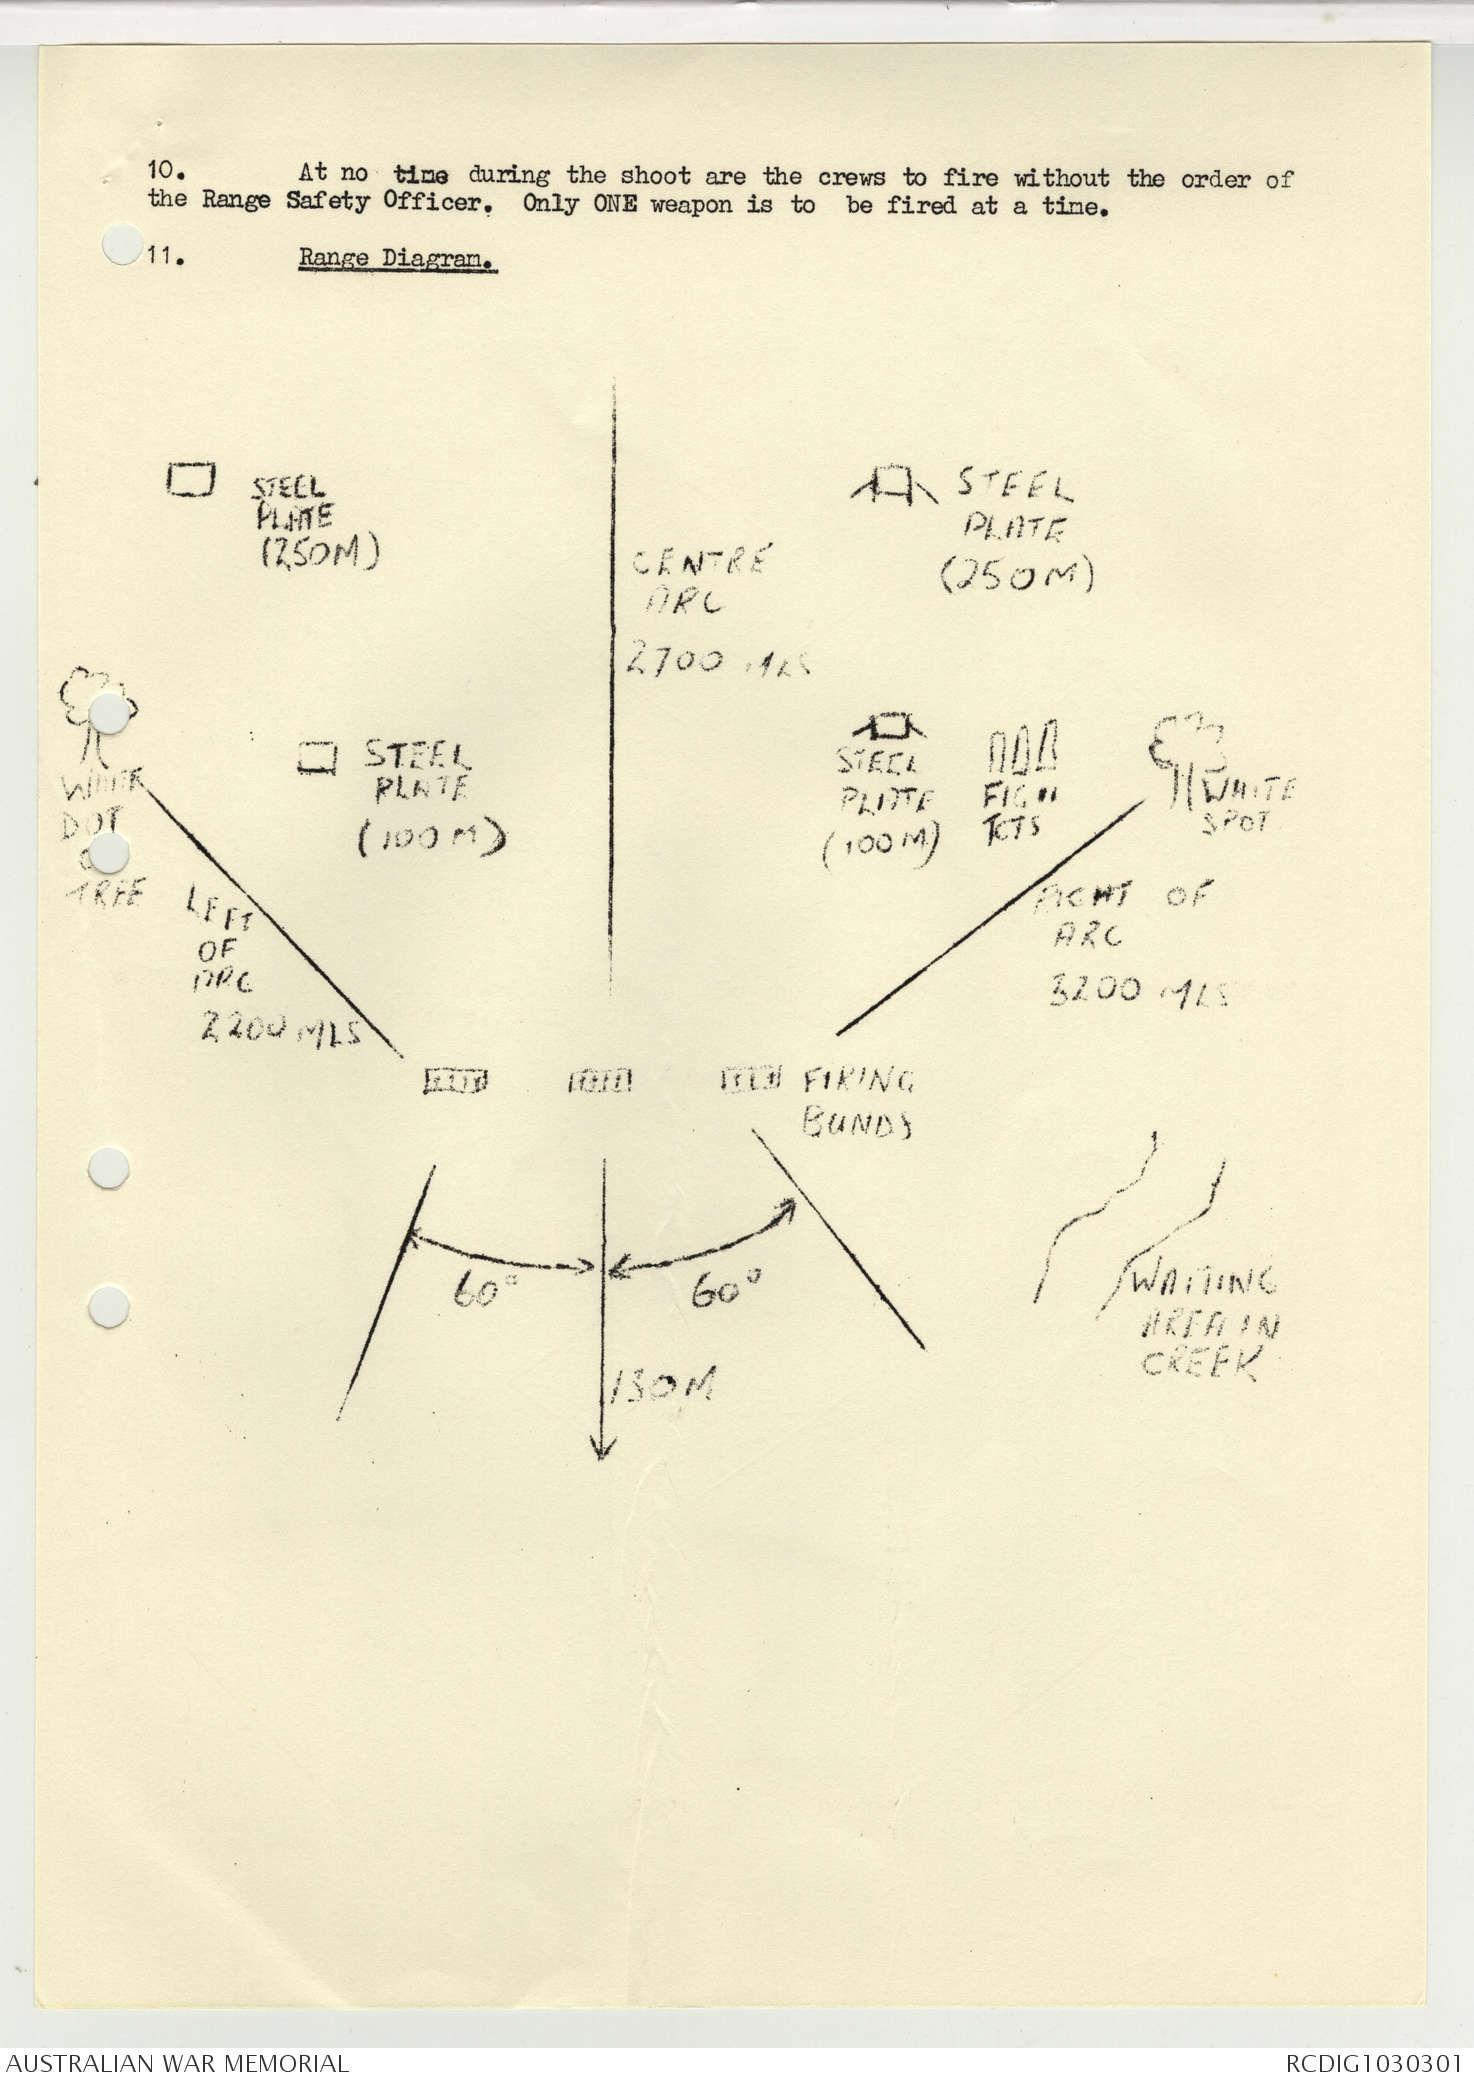 10. At no time during the shoot are the crews to fire without the order of
the Range Safety Officer. Only ONE weapon is to be fired at a time.
11. Range Diagram.
STEEL
PLATE
(250M)
STEEL
PLATE
(250M)
CENTRE
ARC
2700 MLS
STEEL
PLATE
(100M)
STEEL
PLATE
(100M)
FIG 11
TGTS
WHITE
SPOT
WHITE
DOT
TREE
LEFT
OF
ARC
2200 MLS
RIGHT OF
ARC
3200 MLS
FIRING
BUNDS
60°
60°
130M
WAITING
AREA IN
CREEK
AUSTRALIAN WAR MEMORIAL
RCDIG1030301